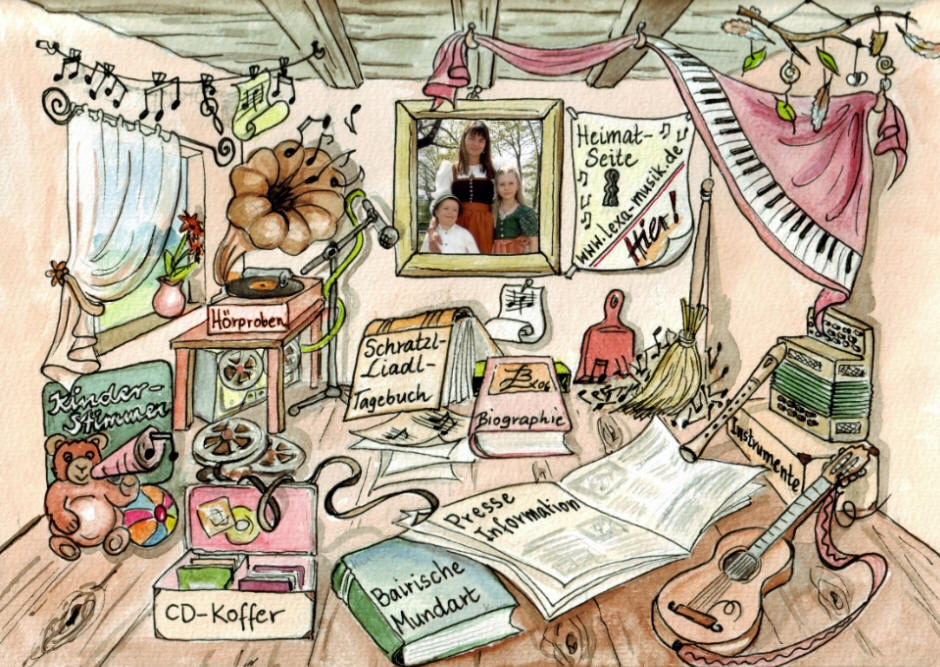 Heimat-
Seite
www.lexa-musik.de
Hier!
Hörproben
Schratzl-
Liadl-
Tagebuch
Kinder-
Stimmen
Biographie
Instrumente
Presse
Information
Bairische
Mundart
CD-Koffer